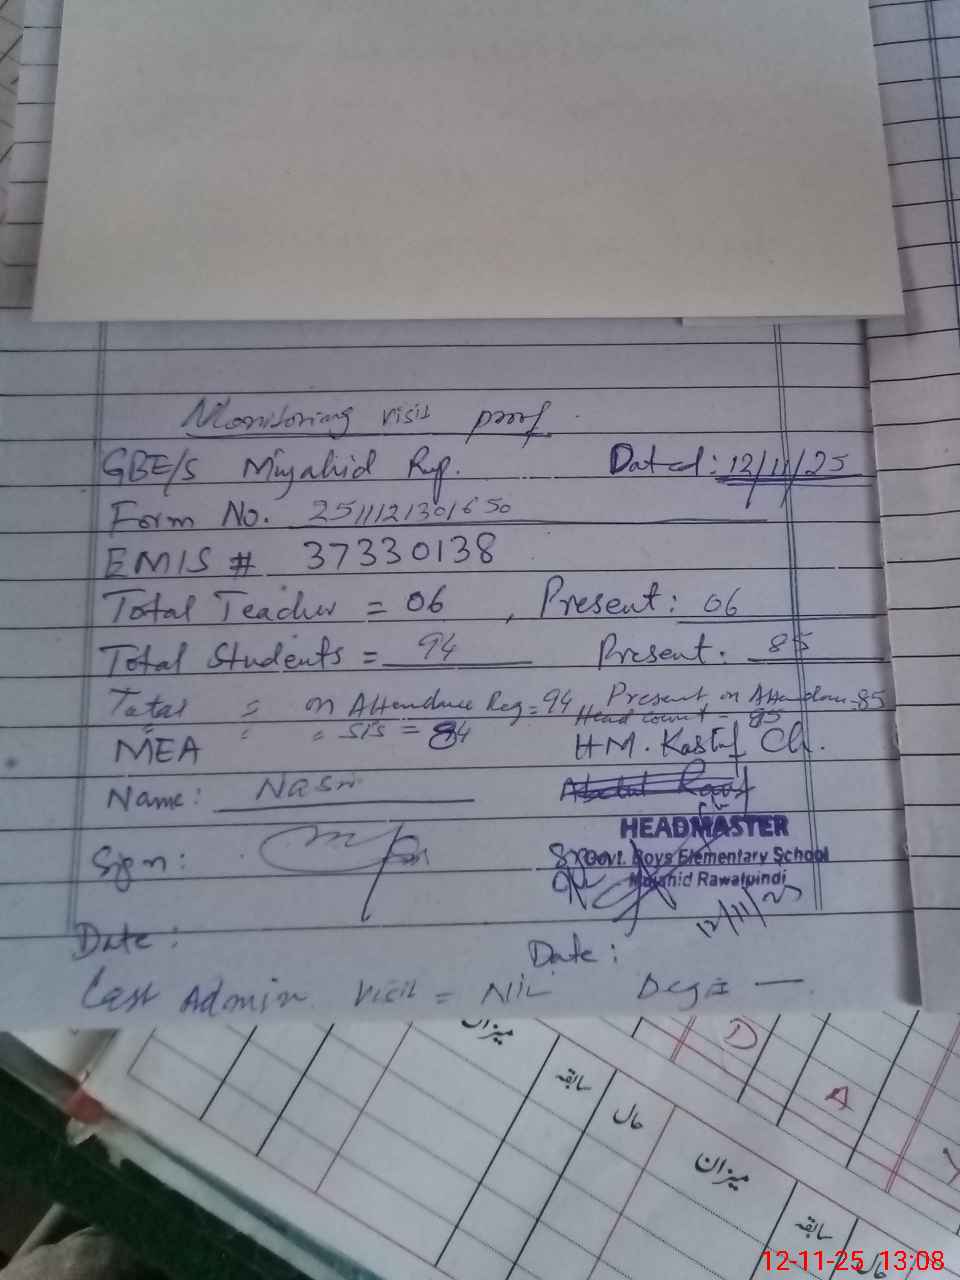 Monitoring visit proof.
GBE/S Mujahid Rwp. Dated: 12/11/25
Form No. 2511121301650
EMIS # 37330138
Total Teacher = 06, Present: 06
Total Students = 94 Present: 85
Total = on Attendance Reg = 94 Present on Attendance = 85
" " " SIS = 94 Head count = 85
MEA HM. Kashif Ch.
Name: Nasir Abdul Rauf
HEADMASTER
Sign: Govt. Boys Elementary School
Mujahid Rawalpindi
12/11/25
Date: Date:
Last Admin visit = Nil Desg: —
میزان
سابقہ
حال
میزان
سابقہ
حال
D
A
12-11-25 13:08